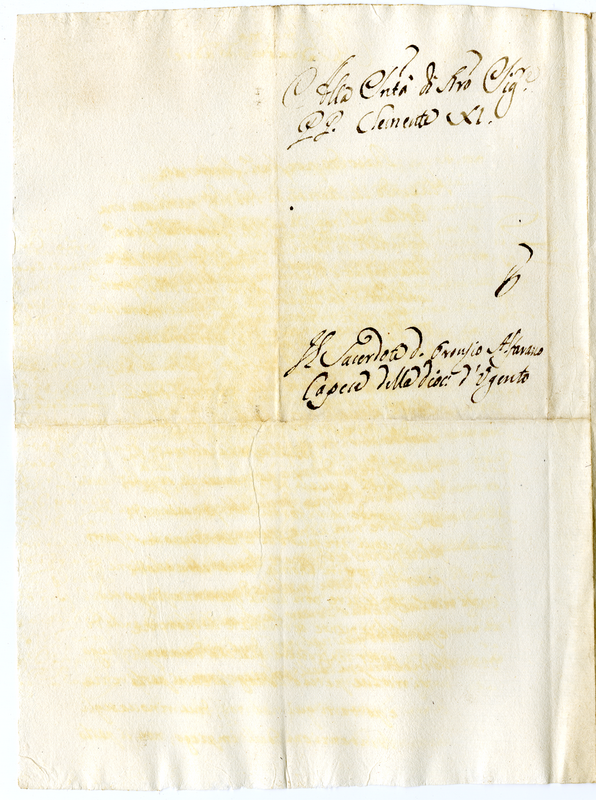 Alla Sntà di Nro Sigre
PP. Clemente XI.
Il Sacerdote D. Oronsio Alfarano
Capece della Dioc. d'Ugento